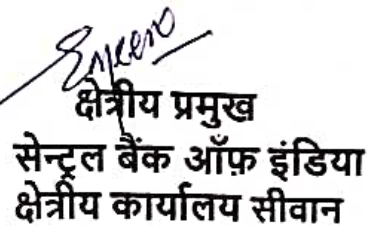 क्षेत्रीय प्रमुख
सेन्ट्रल बैंक ऑफ़ इंडिया
क्षेत्रीय कार्यालय सीवान